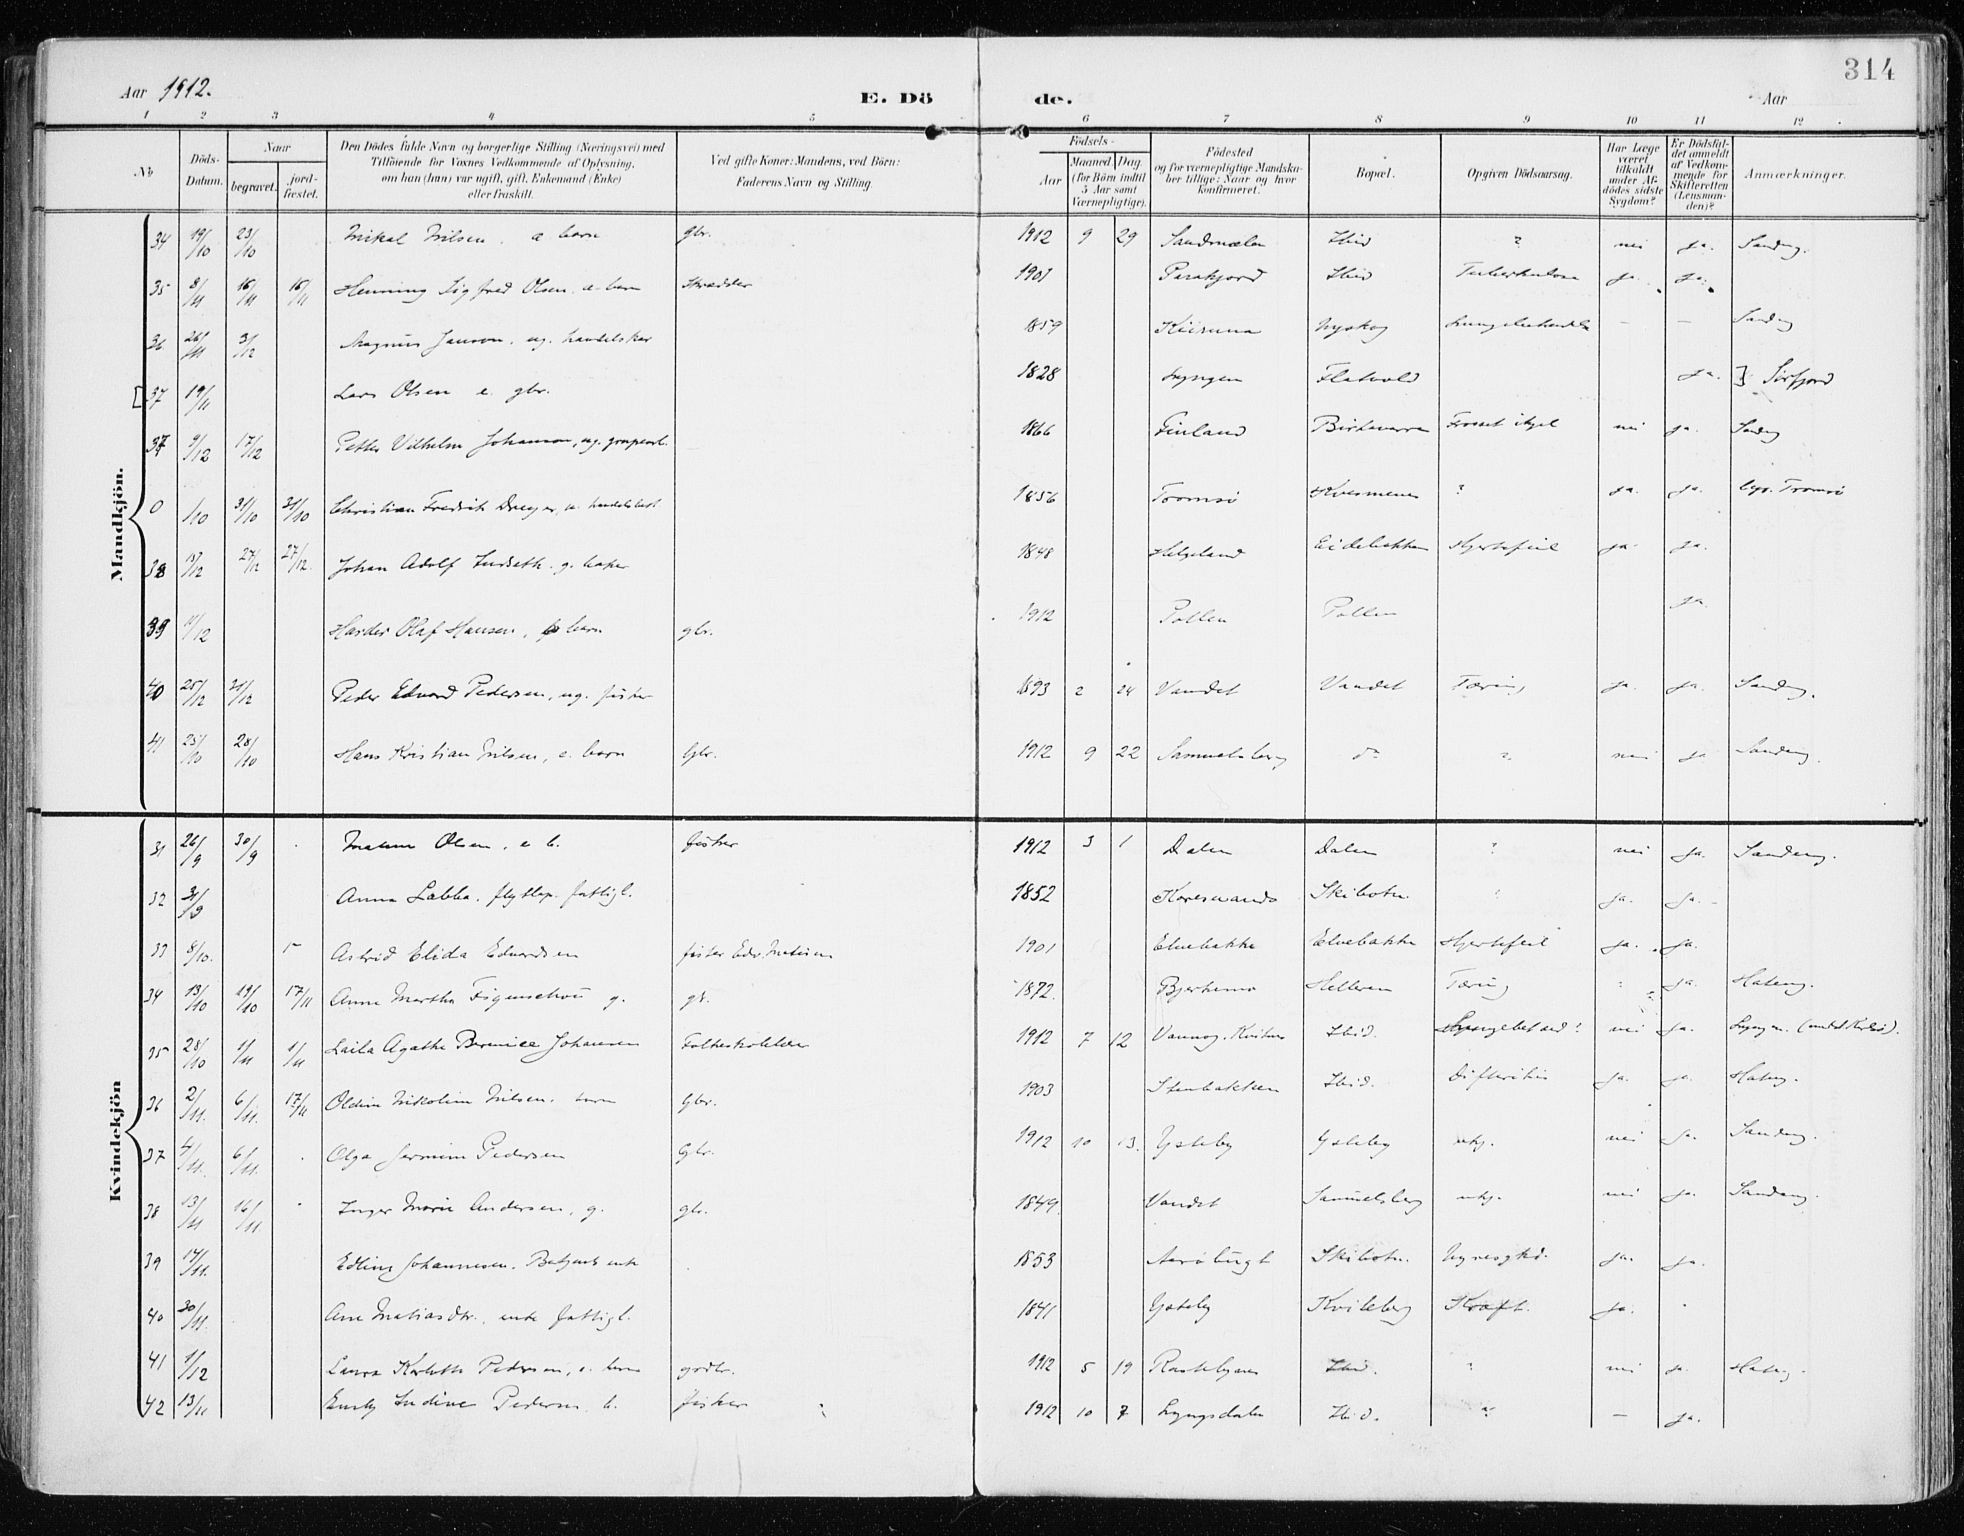 314
Aar 1912.
E. Dö de.
Aar
1 2 3 4 5 6 7 8 9 10 11 12
No
Döds-Datum.
Naar
begravet.
jord-fæstet.
Den Dödes fulde Navn og borgerlige Stilling (Næringsvei) med
Tilföiende for Voxnes Vedkommende af Oplysning,
om han (hun) var ugift, gift, Enkemand (Enke)
eller fraskilt.
Ved gifte Koner: Mandens, ved Börn:
Faderens Navn og Stilling.
Födsels-
Aar
Maaned. Dag.
(for Börn indtil
5 Aar samt
Værnepligtige).
Födested
og for værnepligtige Mandska-
ber tillige: Naar og hvor
konfirmeret.
Bopæl.
Opgiven Dödsaarsag.
Har Læge
været
tilkaldt
under Af-
dödes sidste
Sygdom?
Er Dödsfal-
det anmeldt
af Vedkom-
mende for
Skifteretten
(Lensman-
den)?
Anmærkninger.
Mandkjön.
34 19/10 23/10 Mikal Nilsen. e barn gbr. 1912 9 29 Ibid ? nei ja. Sandeng.
35 8/11 16/11 16/11 Henning Sigfred Olsen. e. barn Skrædder 1901 Parakjord Ibid Tuberkulose ja. ja.
36 26/11 3/12 Magnus Janson, ug. handelskar 1859 Kiiruna Nyskog — — Sandeng
[37 19/11 Lars Olsen e. gbr. 1828 Lyngen Flatvold ja. } Sørfjord
37 9/12 17/12 Petter Vilhelm Johanson, ug. grubearb. 1866 Finland Birtavarre Frosset ihjel nei ja. Sandeng
0 /10 31/10 31/10 Christian Fredrik Dreyer, 1856 Tromsø Kvesmenes ? ja. ja. Tromsø
38 27/12 27/12. Johan Adolf Lundseth. g. baker 1848 Helgeland Eidebakken Hjertefeil ja. ja.
39 11/12 Harder Olaf Hansen, barn gbr. 1912 Pollen Pollen ja.
40 25/12 Peder Edvard Pedersen, ug. fisker 1893 2 24 Vandet Vandet Tæring ja. ja. Sandeng.
41 25/10 28/10 Hans Kristian Nilsen, e. barn Gbr. 1912 9 22 Samuelsberg do ? nei ja Sandeng.
Kvindekjön
31 26/9 30/9 Olsen, e b. fisker 1912 3 1 Dalen Dalen ? nei ja. Sandeng.
32 Anna Labba. flytlap. fattigl. 1852 Karesuando Skibotn. ja. ja.
33 8/10. Astrid Elida Edvardsen fisker Edv. Matisen 1901 Elvebakke Elvebakke Hjertefeil ja. ja.
34 13/10 19/10 17/11 Anne Martha Figenschou g. 1872. Helleren Tæring ja. Hateng.
35 28/10 1/11 1/11 Laila Agathe Berenice Johansen 1912 7 12 Ibid. Lungebetænd? nei ja. Lyngen.
36 2/11. 6/11. 17/11 Oldine Nikoline Nilsen. barn Gbr. 1903 Stenbakken Ibid. Difteritis ja. ja. Hateng.
37 4/11. 6/11. Olga Jermine Pedersen Gbr. 1912 10 13. Ysteby Ysteby ukj. nei ja. Sandeng.
38 13/11 16/11. Inger Marie Andersen, g. gbr. 1849. Vandet Samuelsberg ukj. nei ja. Sandeng.
39 17/11. Edline Johannesen. enke 1853 Skibotn. Nyresygd. ja. ja.
40 30/11. Ane Matiasdtr. enke fattigl. 1841 Ysteby Kviteberg Kræft. ja.
41 1/12 Laura Pedersen, e. barn grdbr. 1912 5 19 Rastebynes Ibid. ? nei ja. Hateng.
42 13/11 Emely Indine Pedersen b. fisker 1912 10 7 Lyngsdalen Ibid. ? — ja.